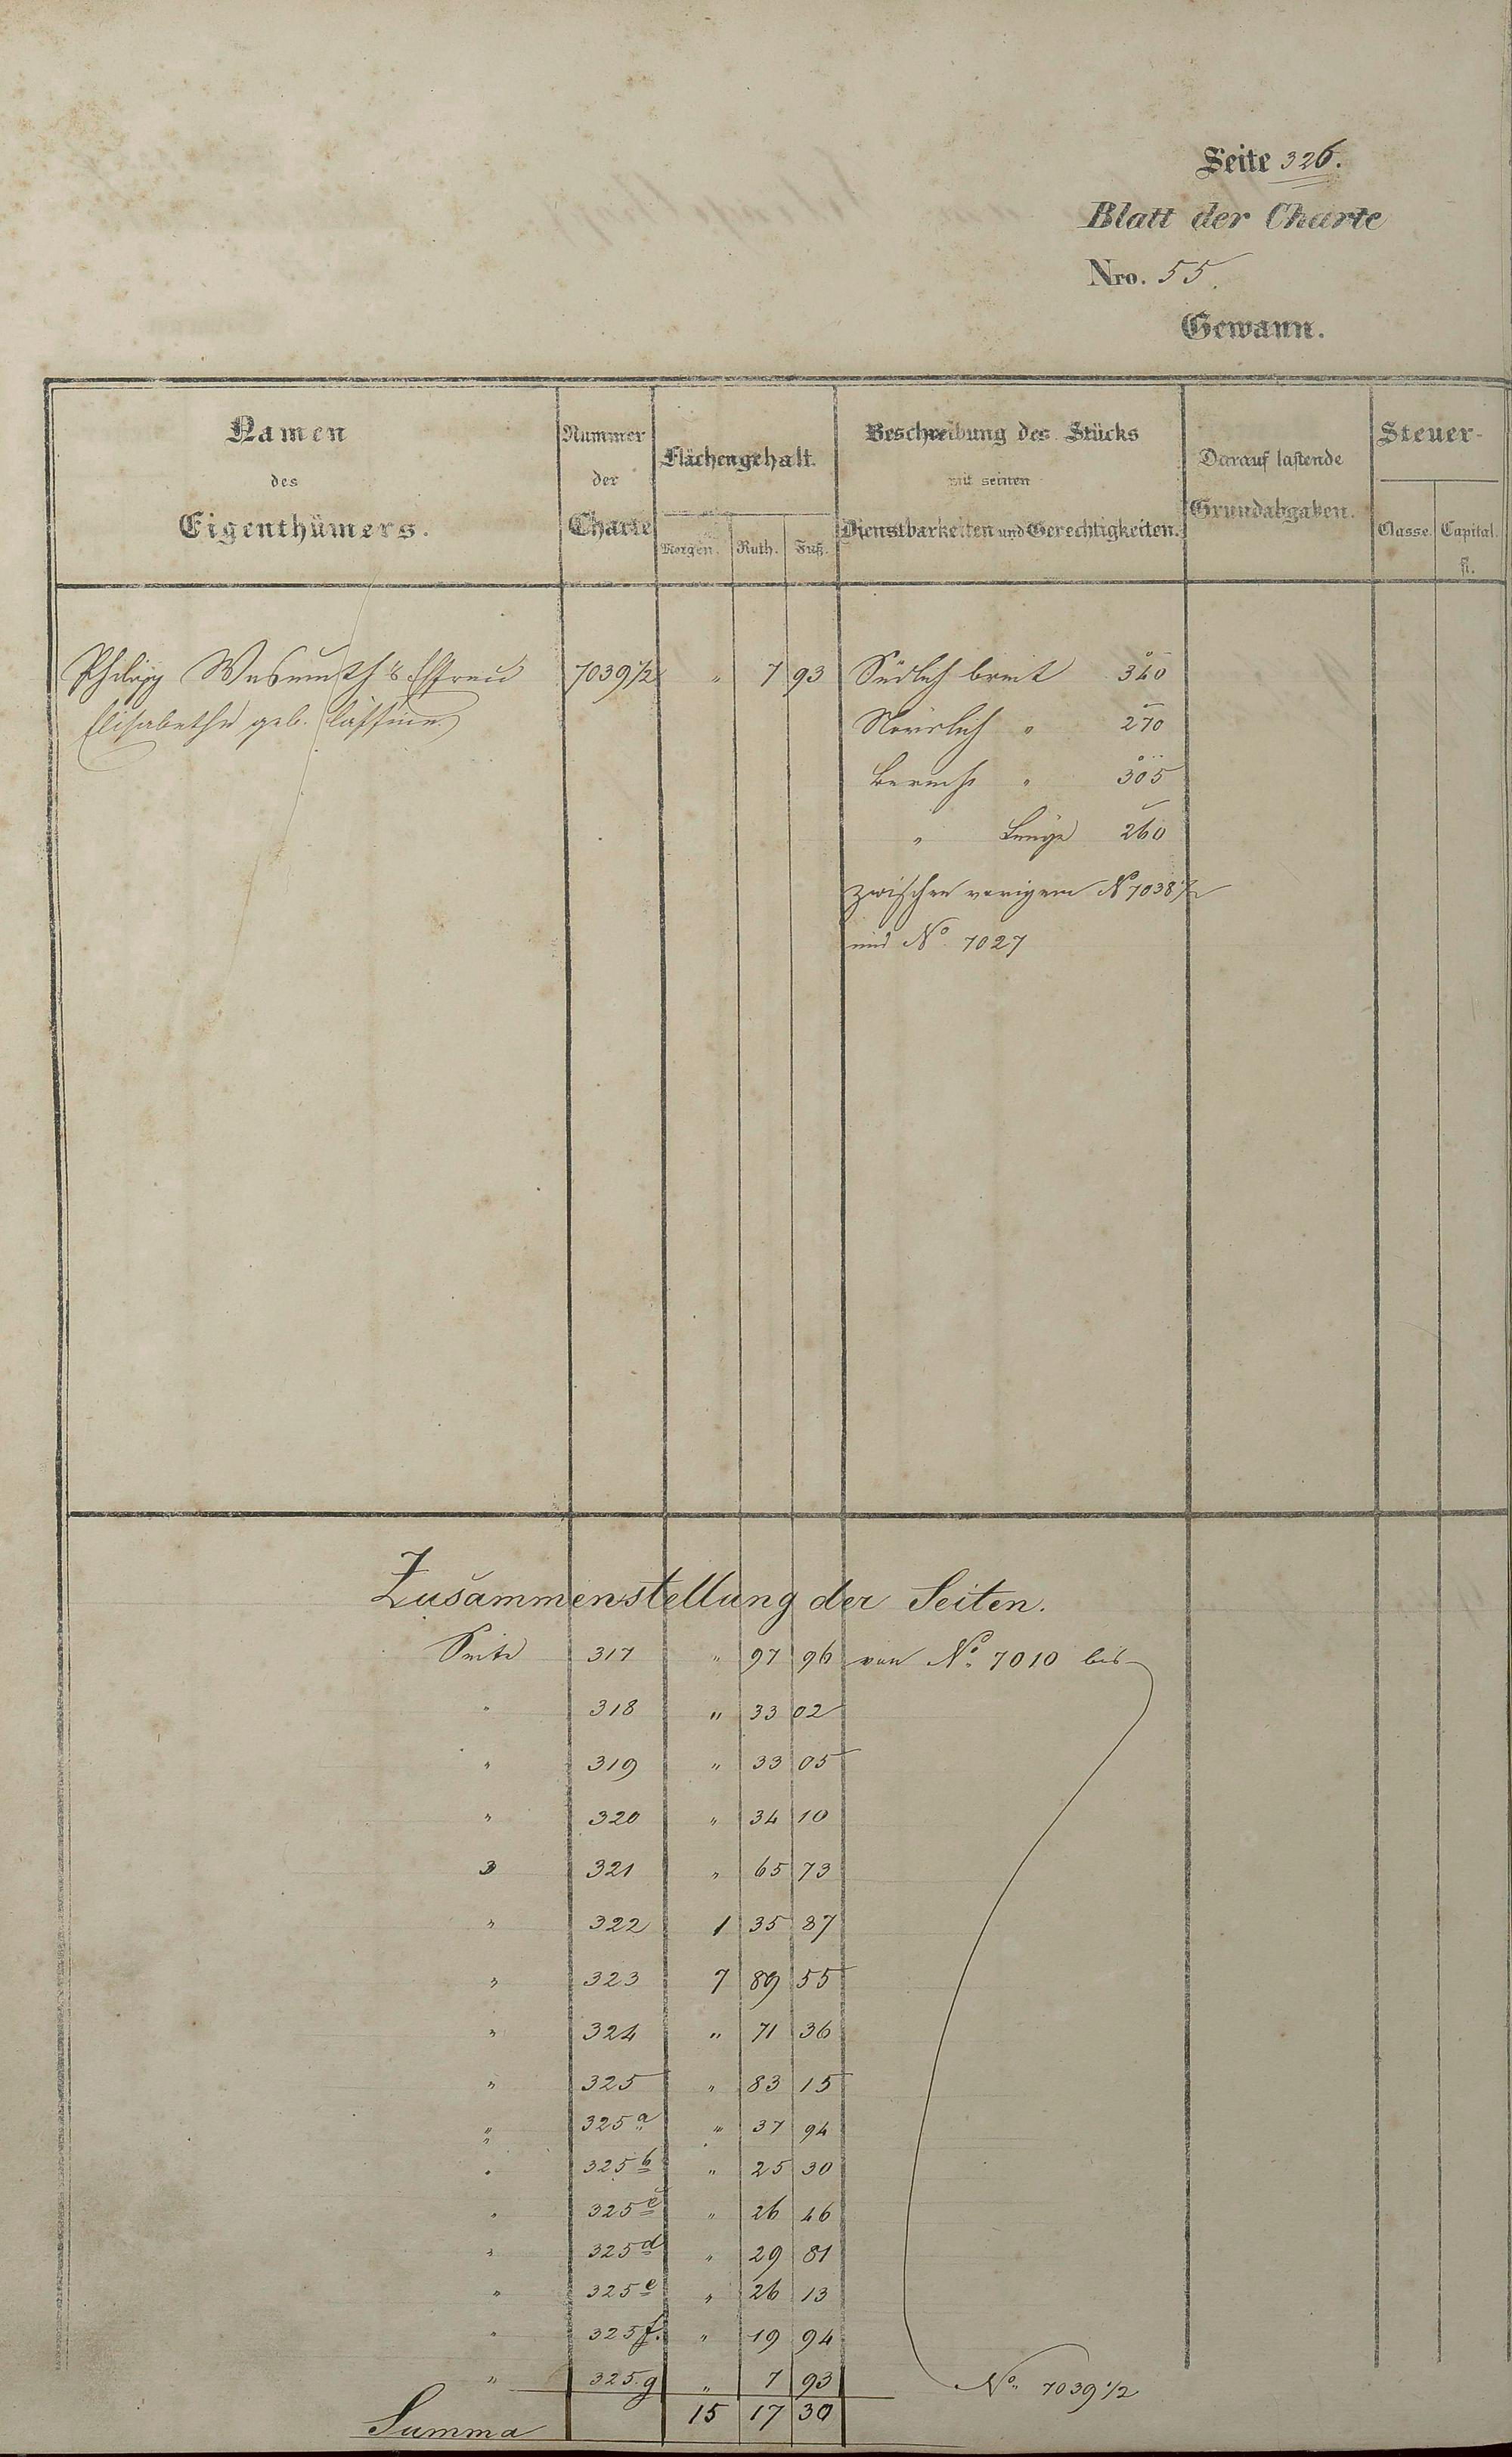 Seite 326.
Blatt der Charte
Nro. 55.
Gewann.
Namen
des
Eigenthümers.
Nummer
der
Charte
Flächengehalt.
Morgen. Ruth. Fuß.
Beschreibung des Stücks
mit seinen
Dienstbarkeiten und Gerechtigkeiten.
Darauf lastende
Grundabgaben.
Steuer-
Classe. Capital.
fl.
Philipp Wasmuth's Ehefrau 7039 1/2 " 7 93 Südlich breit 340
Elisabetha geb. Nördlich " 270
" 305
" Länge 260
zwischen vorigem No 7038 1/2
und No. 7027
Zusammenstellung der Seiten.
Seite 317 " 97 96 von No. 7010 bis
" 318 " 33 02
" 319 " 33 05
" 320 " 34 10
" 321 " 65 73
" 322 1 35 87
" 323 7 89 55
" 324 " 71 36
" 325 " 83 15
" 325 a " 37 94
" 325 b " 25 30
" 325 c " 26 46
" 325 d " 29 81
" 325 e " 26 13
" 325 f. " 19 94
" 325.g " 7 93 No. 7039 1/2
Summa 15 17 30